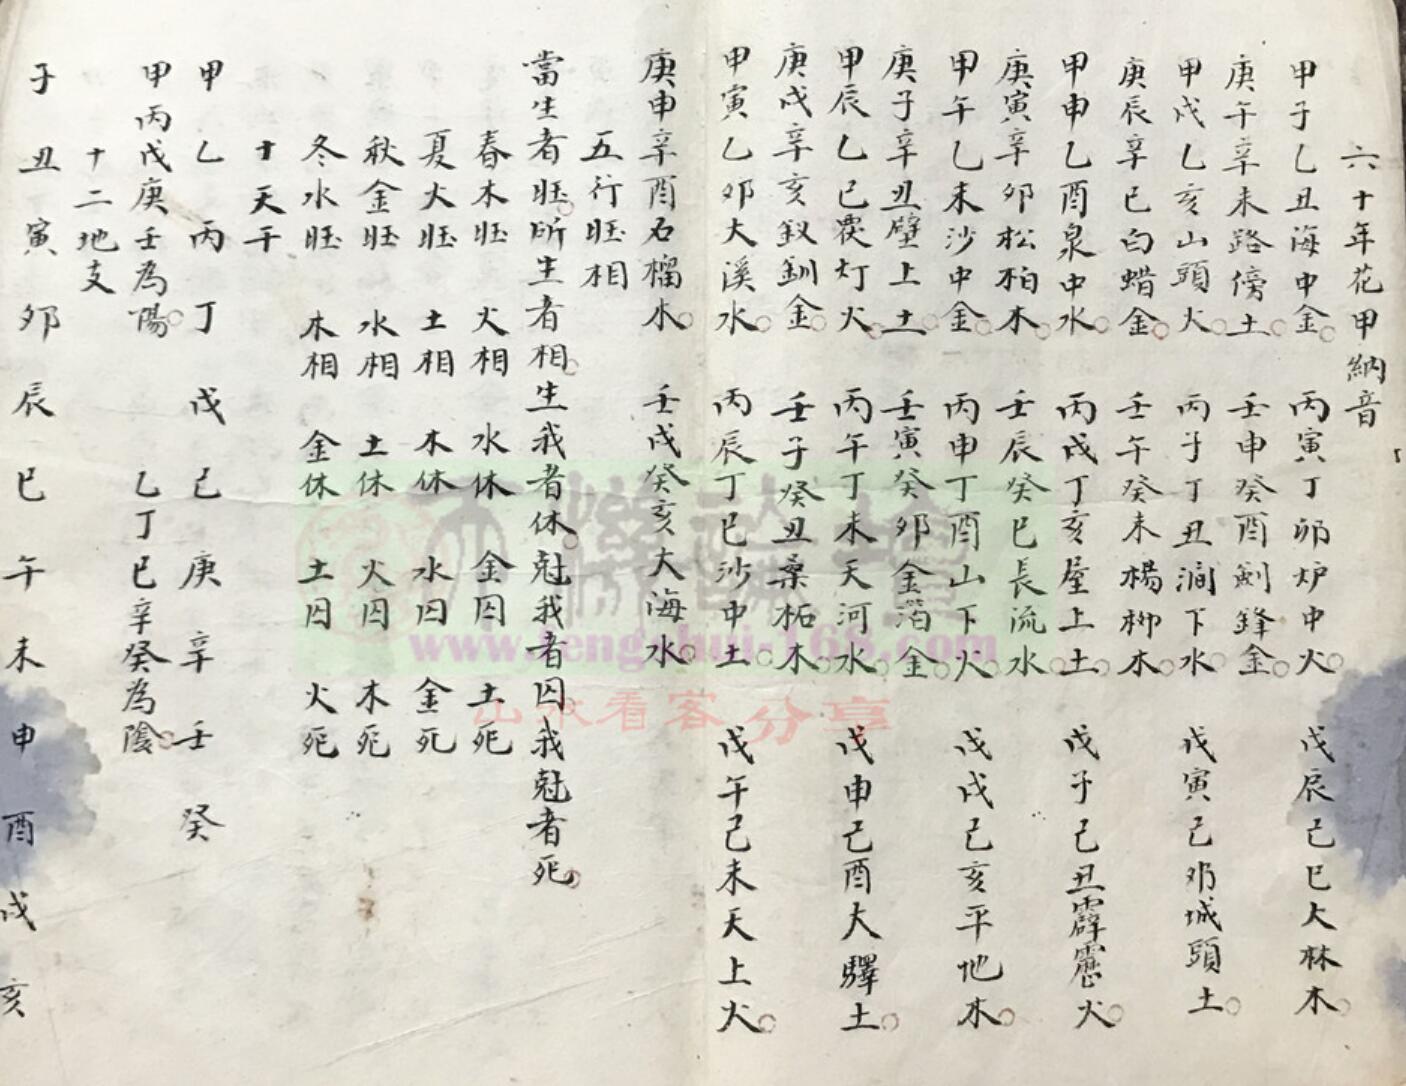 六十年花甲納音
甲子乙丑海中金 丙寅丁卯炉中火 戊辰己巳大林木
庚午辛未路傍土 壬申癸酉劍鋒金
甲戌乙亥山頭火 丙子丁丑澗下水 戊寅己卯城頭土
庚辰辛巳白蜡金 壬午癸未楊柳木
甲申乙酉泉中水 丙戌丁亥屋上土 戊子己丑霹靂火
庚寅辛卯松柏木 壬辰癸巳長流水
甲午乙未沙中金 丙申丁酉山下火 戊戌己亥平地木
庚子辛丑壁上土 壬寅癸卯金箔金
甲辰乙巳覆灯火 丙午丁未天河水 戊申己酉大驛土
庚戌辛亥釵釧金 壬子癸丑桑柘木
甲寅乙卯大溪水 丙辰丁巳沙中土 戊午己未天上火
庚申辛酉石榴木 壬戌癸亥大海水
五行旺相
當生者旺所生者相生我者休尅我者囚我尅者死
春木旺 火相 水休 金囚 土死
夏火旺 土相 木休 水囚 金死
秋金旺 水相 土休 火囚 木死
冬水旺 木相 金休 土囚 火死
十天干
甲乙丙丁戊己庚辛壬癸
甲丙戊庚壬為陽 乙丁己辛癸為陰
十二地支
子丑寅卯辰巳午未申酉戌亥
www.fengshui-168.com
山水看客分享